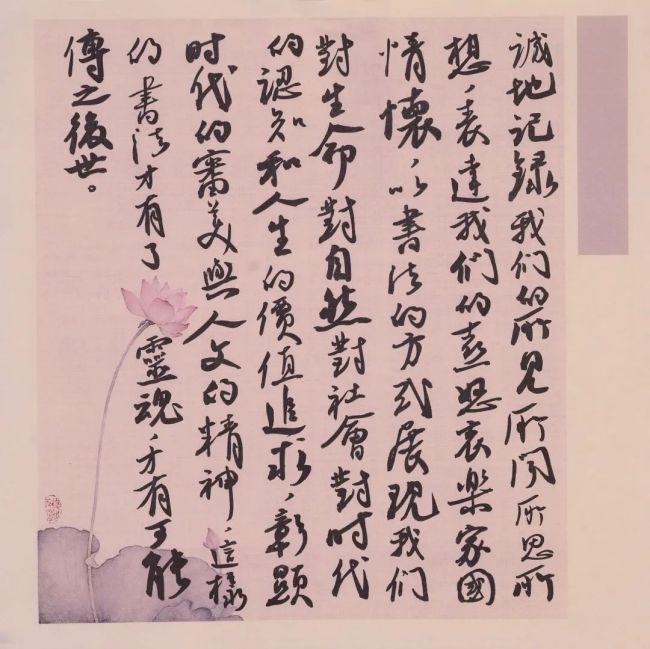 誠地记録我们的所見所闻所思所
想，表達我们的喜怒哀樂家國
情懷，以書法的方式展現我们
對生命對自然對社會對时代
的認知和人生的價值追求，彰顯
时代的審美與人文的精神，這樣
的書法才有了靈魂，才有可能
傳之後世。